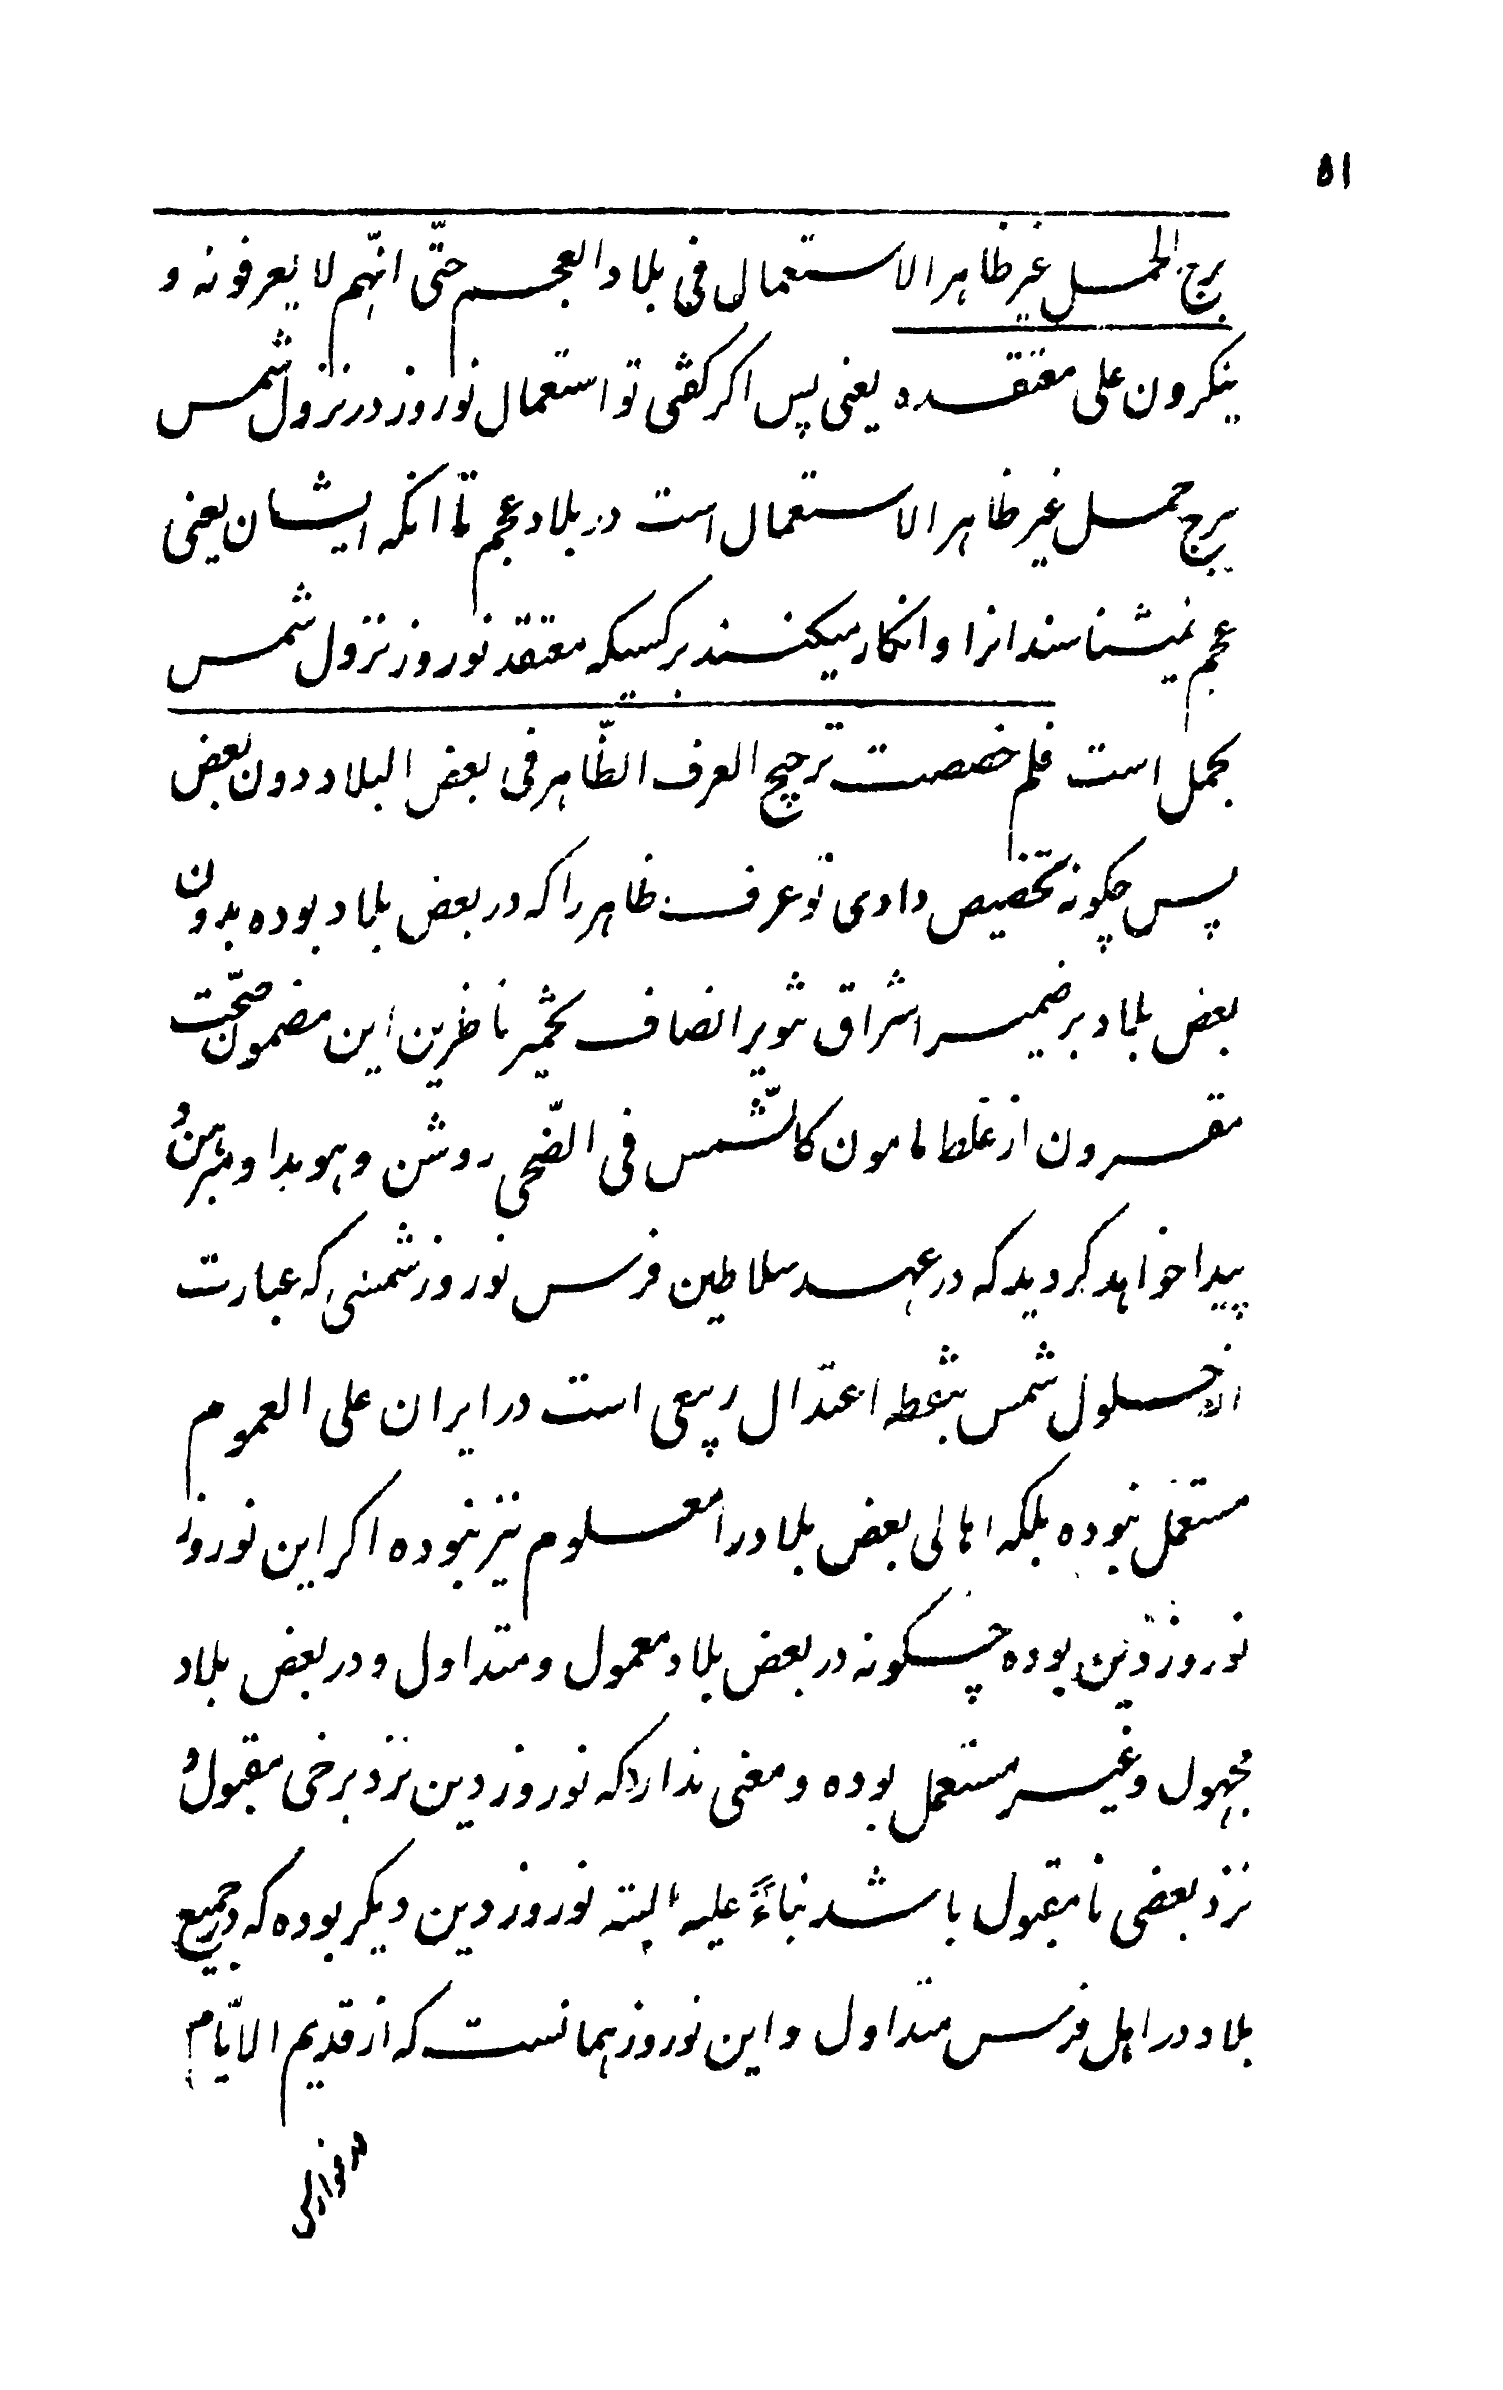 ۵۱
برج الحمل غیر ظاهر الاستعمال فی بلاد العجم حتّی انّهم لا یعرفونه و
ینکرون علی معتقده یعنی پس اکر کفتی تو استعمال نوروز در نزول شمس
ببرج حمل غیر ظاهر الاستعمال است در بلاد عجم تا انکه ایشان یعنی
عجم نمیشناسند انرا و انکار میکنند بر کسیکه معتقد نوروز نزول شمس
بحمل است فلم خصصت ترجیح العرف الظّاهر فی بعض البلاد دون بعض
پس چکونه تخصیص دادی تو عرف ظاهر را که در بعض بلاد بوده بدون
بعض بلاد بر ضمیر اشراق تنویر انصاف تخمیر ناظرین این مضمون صحّت
مقرون از غلط مامون کالشّمس فی الضّحی روشن و هویدا و مبرهن و
پیدا خواهد کردید که در عهد سلاطین فرس نوروز شمسی که عبارت
از حلول شمس بنقطه اعتدال ربیعی است در ایران علی العموم
مستعمل نبوده بلکه اهالی بعض بلاد را معلوم نیز نبوده اکر این نوروز
نوروز دین بوده چکونه در بعض بلاد معمول و متداول و در بعض بلاد
مجهول و غیر مستعمل بوده و معنی ندارد که نوروز دین نزد برخی مقبول و
نزد بعضی نامقبول باشد بناءً علیه البته نوروز دین دیکر بوده که در جمیع
بلاد در اهل فرس متداول و این نوروز همانست که از قدیم الایّام